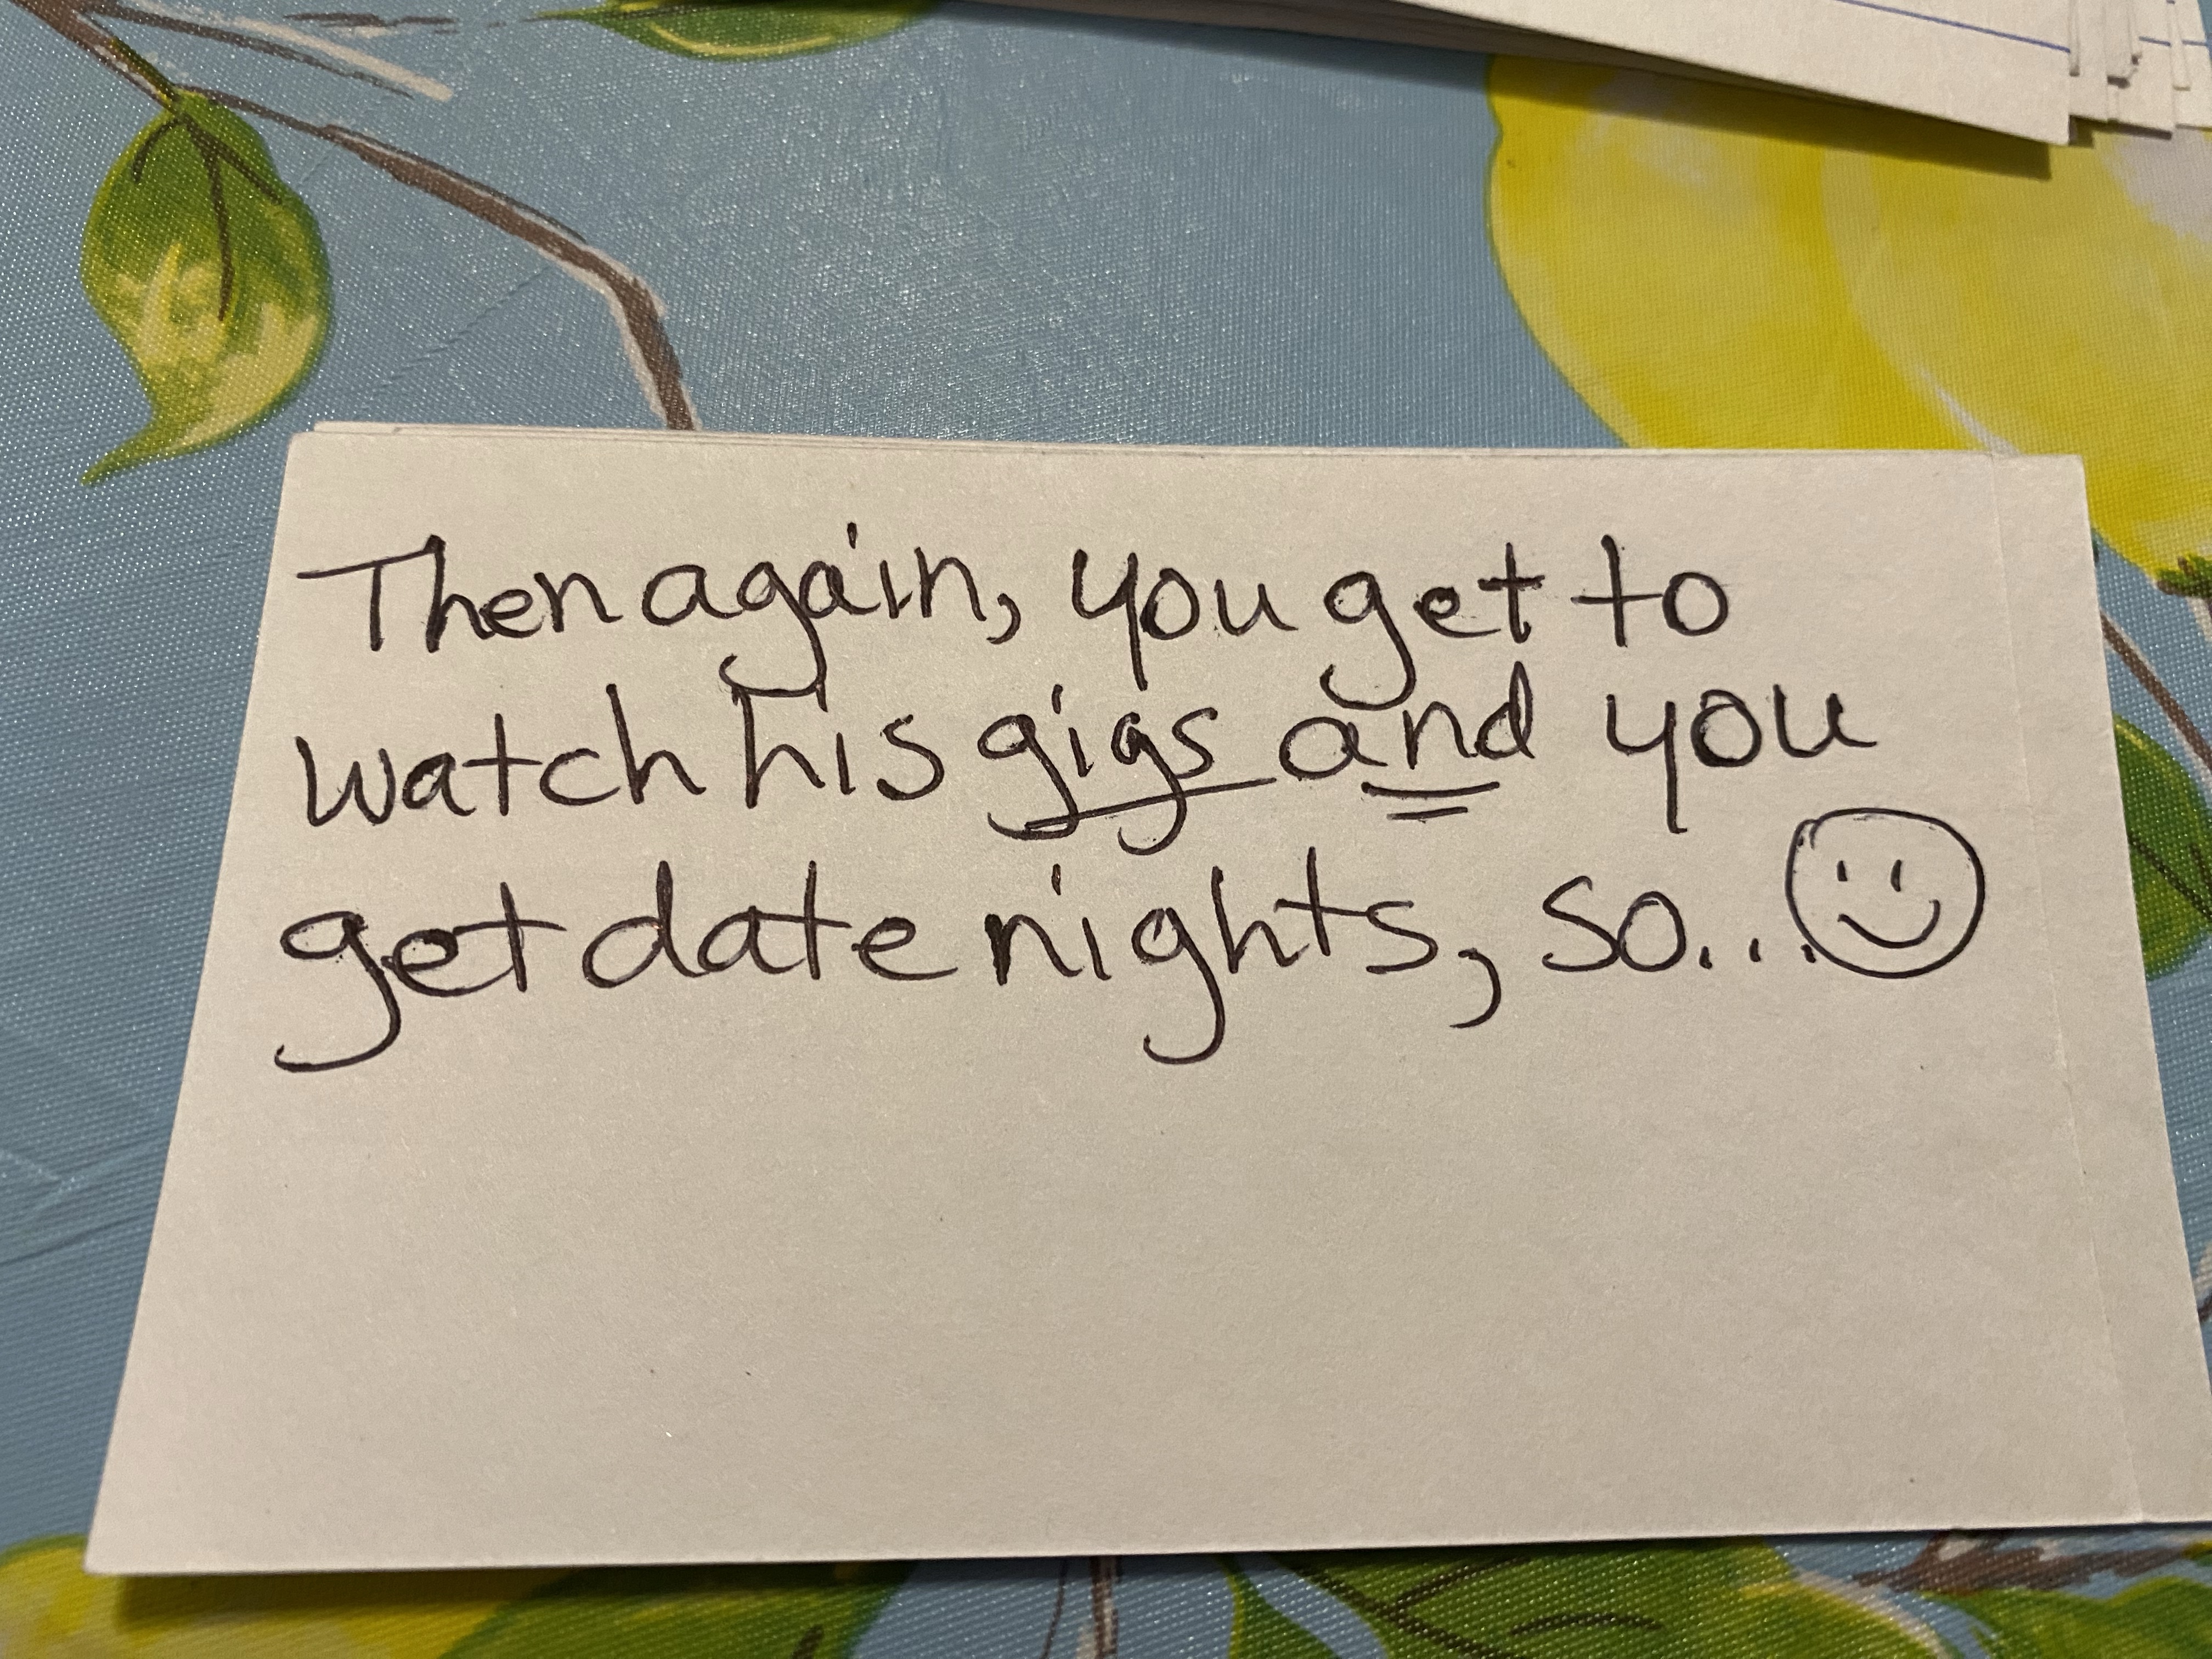 Then again, you get to
watch his gigs and you
get date nights, so...